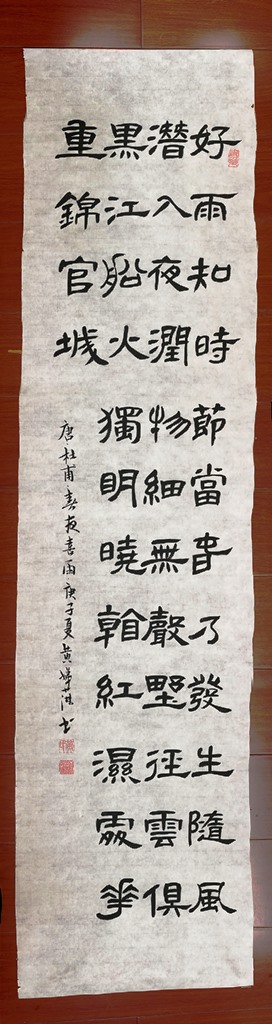 好雨知時節當春乃發生隨風
潛入夜潤物細無聲野徑雲俱
黑江船火獨明曉看紅濕處華
重錦官城
唐杜甫春夜喜雨庚子夏黃書